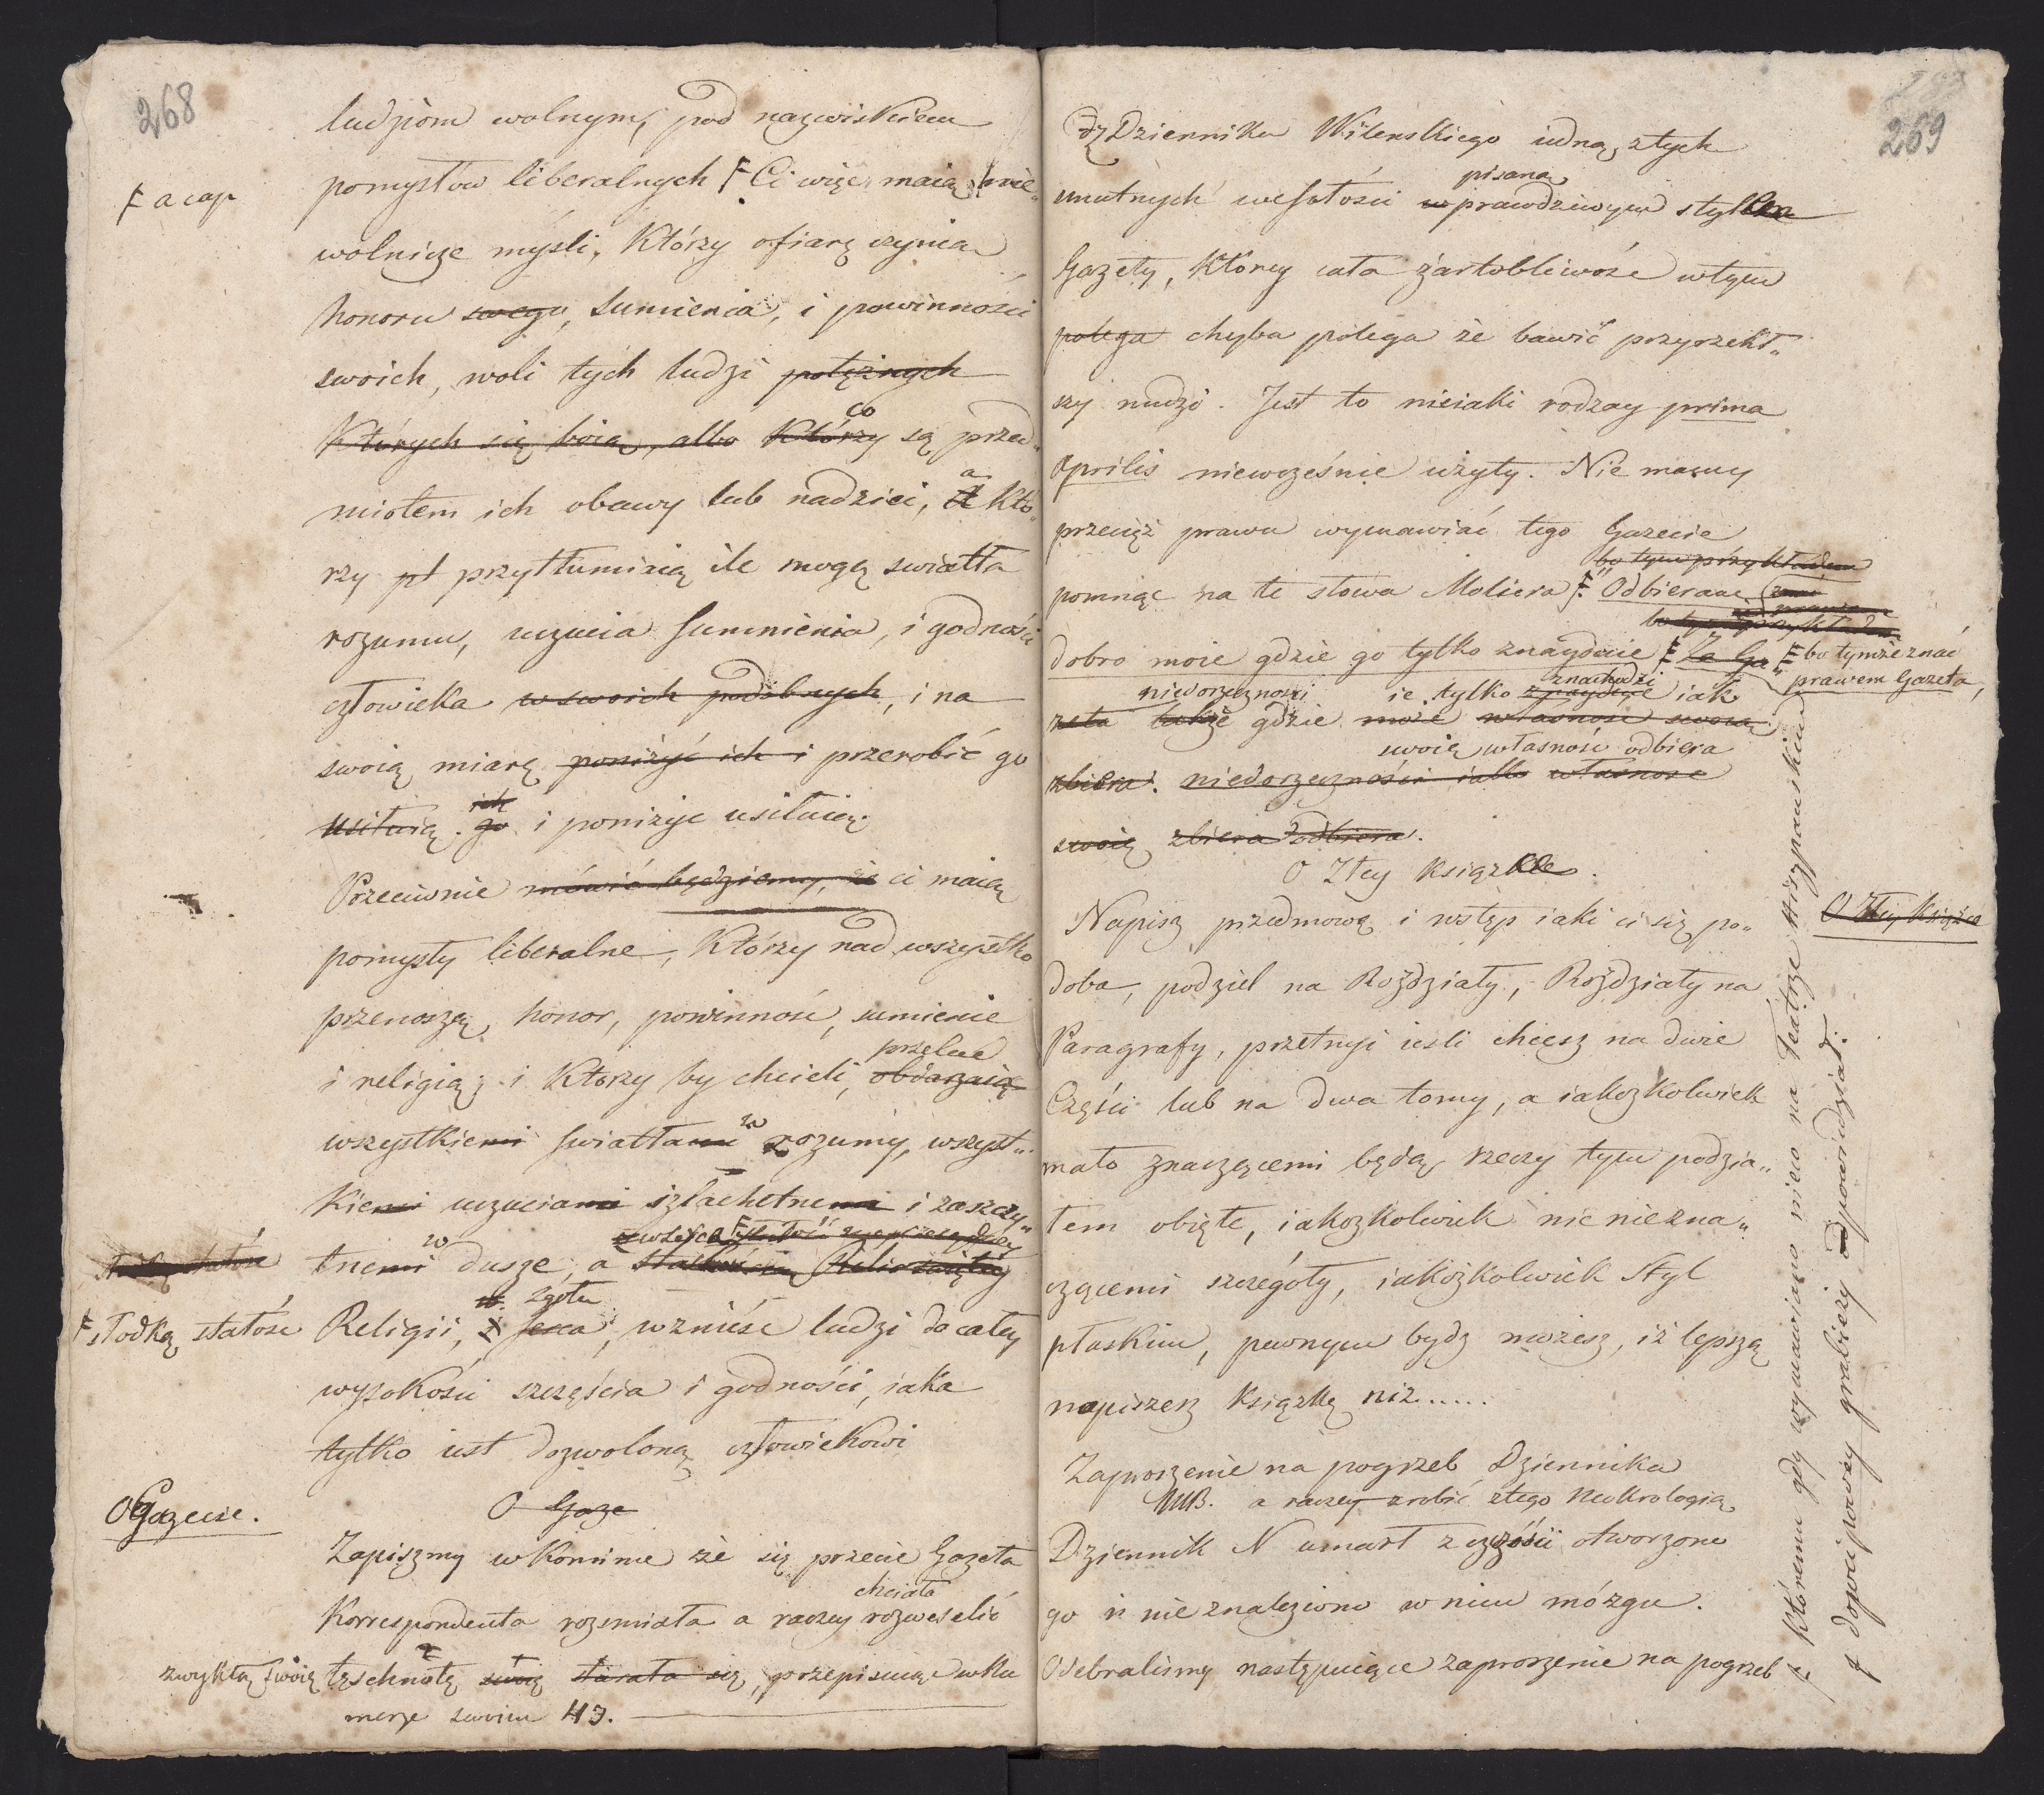 268
ludziom wolnym, pod nazwiskiem
Ⱶ a cap
pomysłow liberalnych Ⱶ Ci więc maią nie„
wolnicze myśli, Którzy ofiarę czynią
honoru swego, sumienia, i powinnosci
swoich, woli tych ludzi potężnych
co
Których się boią, albo Którzy są przed„
a
miotem ich obawy lub nadziei, A Któ„
rzy pt przytłumiaią ile mogą swiatła
rozumu, uczucia sumnienia, i godności
człowieka w swoich podobnych, i na
swoią miarę poniżyć ich i przerobić go
ich
usiłuią. go i poniżyć usiłuią.
Przeciwnie mówić będziemy, że ci maią
pomysły liberalne, Którzy nad wszystko
przenoszą, honor, powinność, sumienie
przelać
i religią; i Ktorzy by chcieli, obdarzaią
w
wszystkiemi swiatłami rozumy, wszyst„
Kiemi uczuciami szlachetnemi i zaszczy„
słodką stałość
w
tnemi dusze, a stałością Relii swiętey
Ⱶ słodką stałość
zgoła
Religii, serca, wznieść ludzi do całey
wysokości szczęścia i godności, iaka
tylko iest dozwoloną człowiekowi
O Gazecie.
O Gaze
Zapiszmy w Kominie że się przecie Gazeta
chciała
Korrespondenta rozsmiała a raczey rozweselić
zwykłą swoię tęschnotę swoię starała się, przepisuiąc w Nu
merze swoim 43.
269
z Dziennika Wilenskiego iedną, z tych
pisaną
smutnych wesołości w prawdziwym stylem
Gazety, Ktorey cała żartobliwość w tym
polega chyba polega że bawić przyrzekł„
szy nudzi. Jest to nieiaki rodzay prima
Aprilis niewcześnie użyty. Nie mamy
przecięż prawa wymawiać tego Gazecie
bo tym przykładem
pomnąc na te słowa Moliera Ⱶ. "Odbieram
bo tym przykładem
dobro moie gdzie go tylko znayduie Ⱶ Za Ga„
Ⱶ bo tymże znać
prawem Gazeta,
niedorzeczności ie tylko znachodzi znayduie iak
zeta także gdzie może własność swoią
swoię własność odbiera
zbiera. niedorzeczności iako własność
swoię zbiera odbiera.
O Złey Książkce.
O Złey Książce
Napisz przedmowę i wstęp iaki ci się po„
doba, podziel na Rozdziały, Rozdziały na
Paragrafy, przetniy iesli chcesz na dwie
Części lub na dwa tomy, a iakożkolwiek
mało znaczącemi będą rzeczy tym podzia„
łem obięte, iakożkolwiek nic niezna„
czącemi szczegóły, iakożkolwiek Styl
płaskim, pewnym bydz możesz, iż lepszą
napiszesz Książkę niż.....
Zaproszenie na pogrzeb Dziennika
NB. a raczey zrobić z tego Nekrologią,
Dziennik N umarł z czczości otworzono
go i nie znaleziono w nim mózgu.
Odebralismy następuiące zaproszenie na pogrzeb
Ⱶ Któremu gdy wymawiano nieco na Teatrze Hiszpanskim
dowcipowey grabieży odpowiedział: